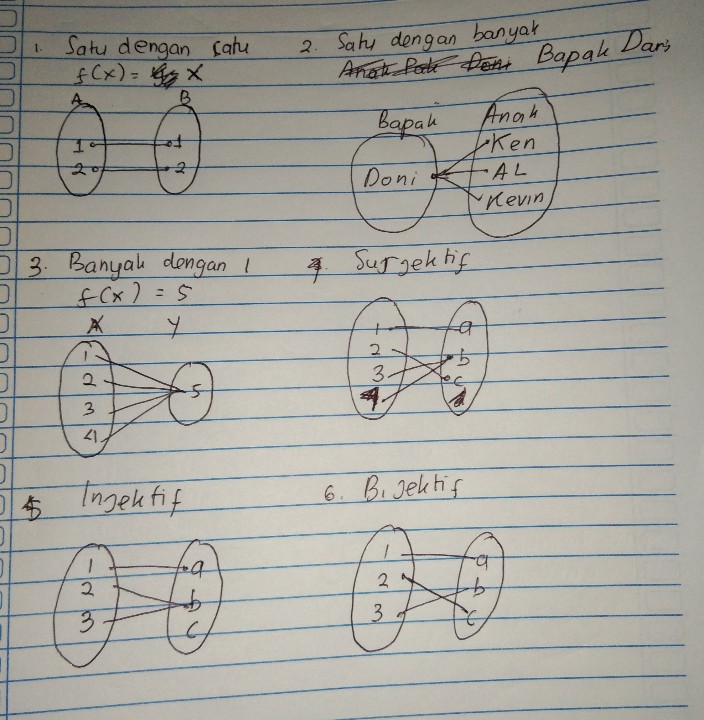 1. Satu dengan satu
f(x) = x
A B
1 1
2 2
2. Satu dengan banyak
Anak Pak Doni Bapak Dari
Bapak Anak
Doni
Ken
AL
Kevin
3. Banyak dengan 1
f(x) = 5
X Y
1
2
3
4
5
4. Surjektif
1 a
2 b
3 c
4
5 Injektif
1 a
2 b
3 c
6. Bijektif
1 a
2 b
3 c